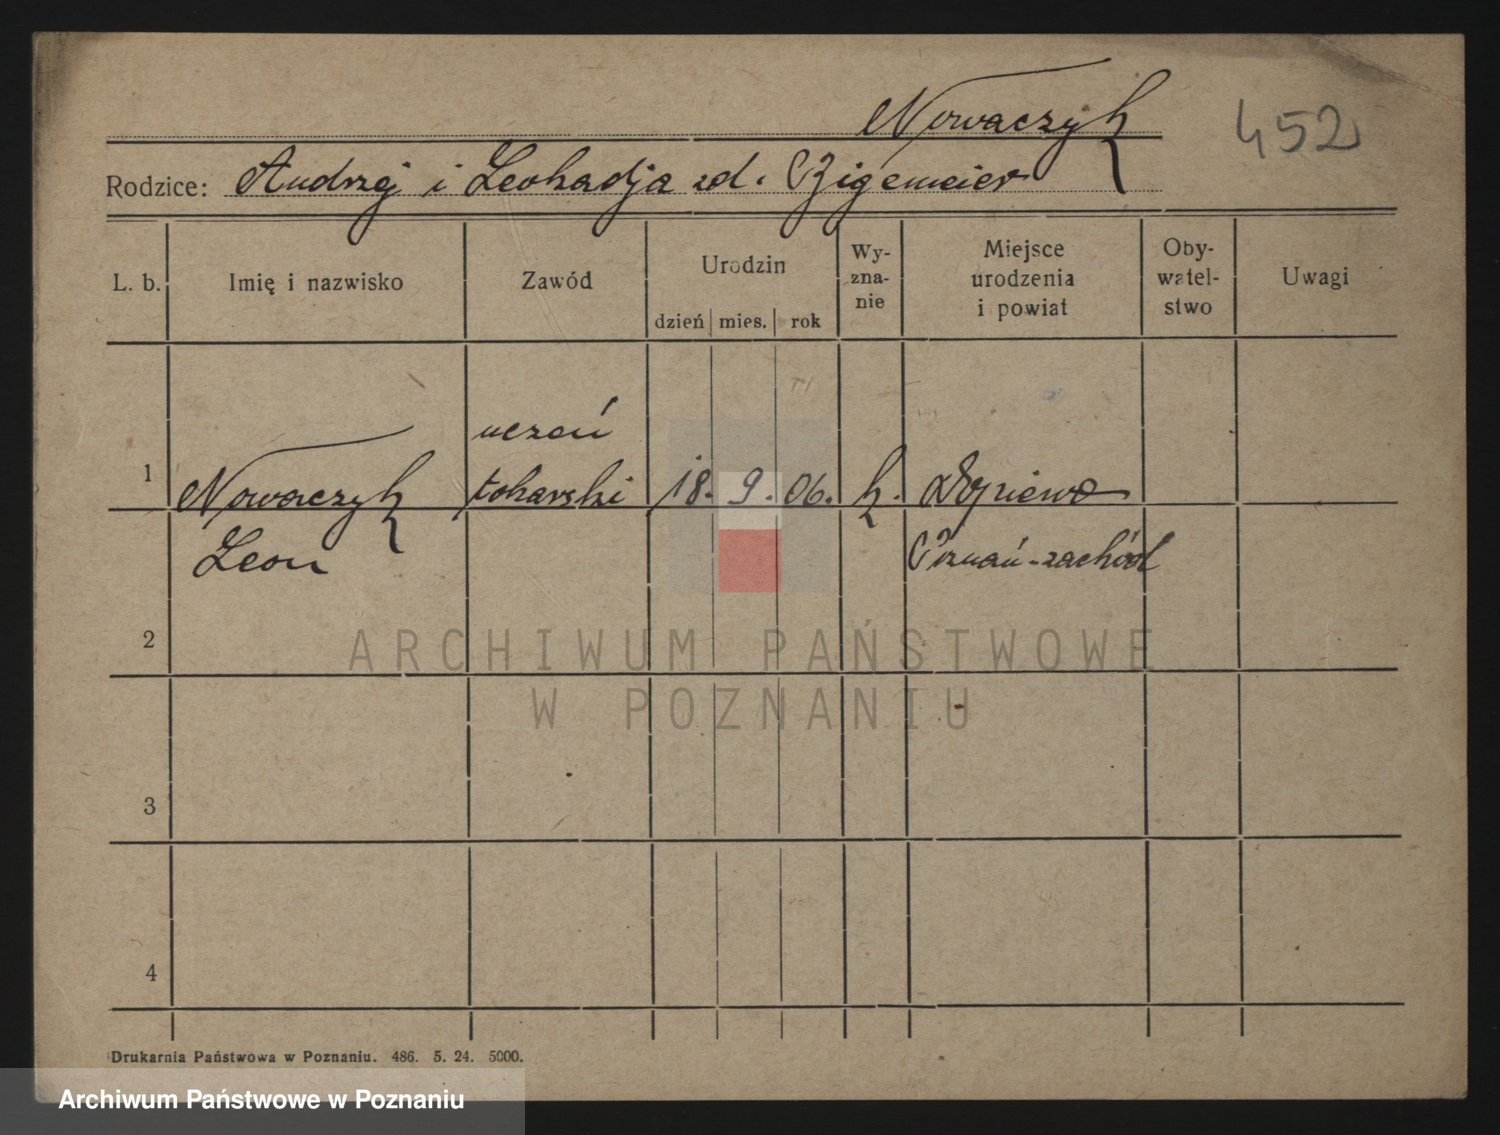 Nowaczyk
452
Rodzice: Andrzej i Leokadja zd. Bzigemeier
L. b.
Imię i nazwisko
Zawód
Urodzin
dzień
mies.
rok
Wy-
zna-
nie
Miejsce
urodzenia
i powiat
Oby-
watel-
stwo
Uwagi
uczeń
1
Nowaczyk
tokarski
18. 9. 06.
k.
Leon
Poznań-zachód
2
3
4
ARCHIWUM PAŃSTWOWE
W POZNANIU
Drukarnia Państwowa w Poznaniu. 486. 5. 24. 5000.
Archiwum Państwowe w Poznaniu